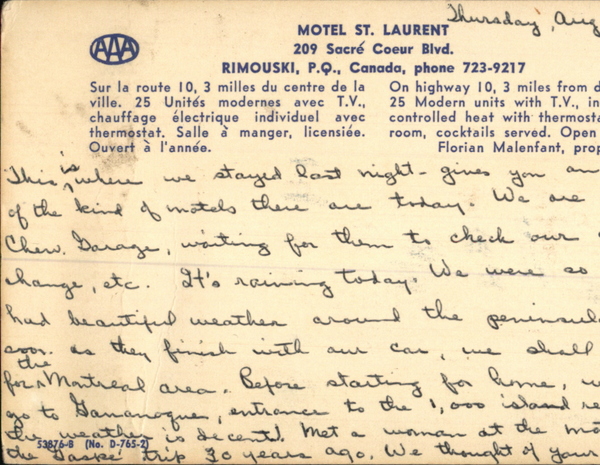 Thursday, Aug
AAA
MOTEL ST. LAURENT
209 Sacré Coeur Blvd.
RIMOUSKI, P.Q., Canada, phone 723-9217
Sur la route 10, 3 milles du centre de la
ville. 25 Unités modernes avec T.V.,
chauffage électrique individuel avec
thermostat. Salle à manger, licensiée.
Ouvert à l'année.
On highway 10, 3 miles from d
25 Modern units with T.V., in
controlled heat with thermosta
room, cocktails served. Open
Florian Malenfant, prop
This is where we stayed last night - gives you an
of the kind of motels there are today. We are
Chev. Garage, waiting for them to check our
change, etc. It's raining today. We were so
had beautiful weather around the peninsul
soon as they finish with our car, we shall
for the Montreal area. Before starting for home, w
go to Gananoque, entrance to the 1,000 island re
the weather is decent. Met a woman at the mo
the Gaspé trip 30 years ago. We thought of your
53876-B (No. D-765-2)